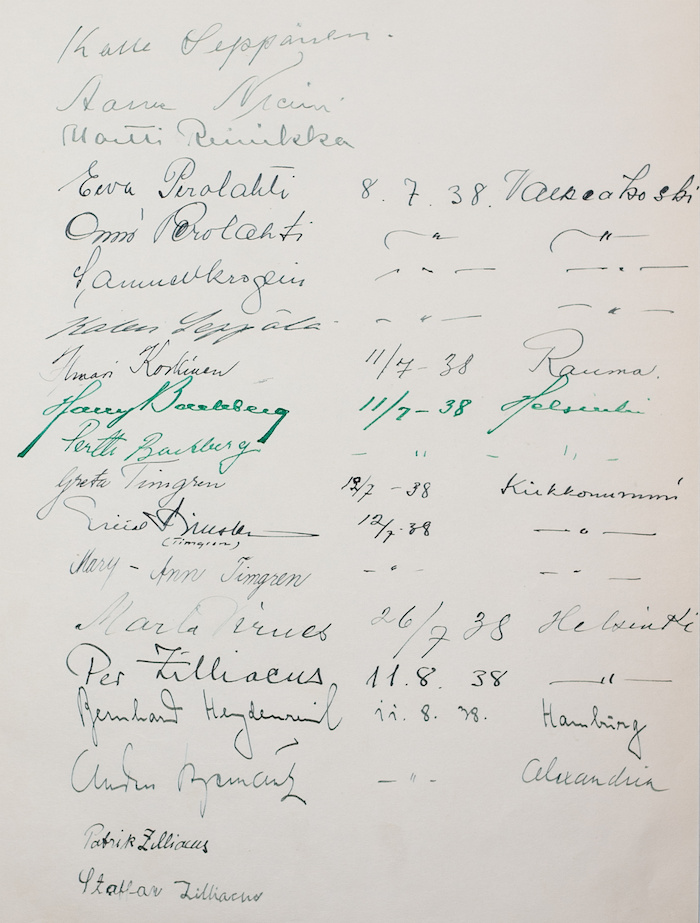 Kalle Seppänen.
Aarne
Martti Reinikka
Eeva Perolahti 8. 7. 38. Valkeakoski
Onni Perolahti — " — — " —
— " — — " —
Seppälä — " — — " —
Ilmari Koskinen 11/7 - 38 Rauma.
Harry Backberg 11/7 - 38 Helsinki
Pertti Backberg — " — — " —
Greta Timgren 12/7 - 38 Kirkkonummi
(Timgren) 12/7 - 38 — " —
Mary - Ann Timgren — " — — " —
Marta 26/7 38 Helsinki
Per Zilliacus 11. 8. 38 — " —
Bernhard 11. 8. 38. Hamburg
— " — Alexandria
Patrik Zilliacus
Staffan Zilliacus